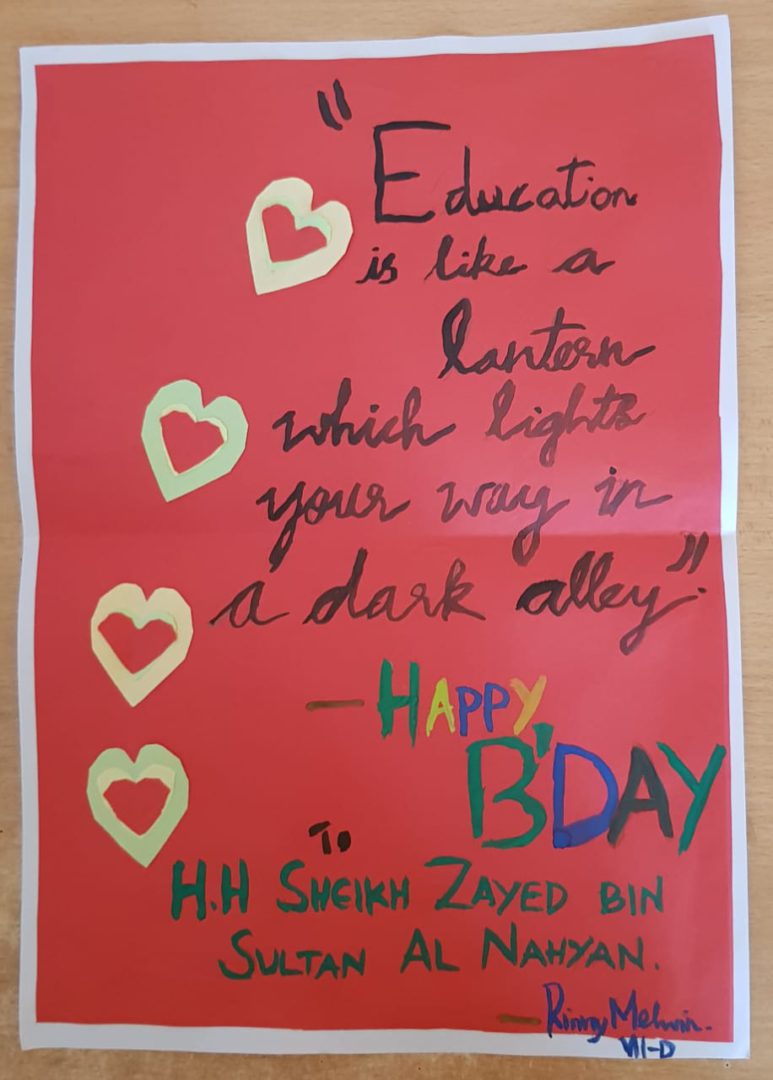 "Education
is like a
lantern
which lights
your way in
a dark alley".
— HAPPY
B'DAY
To
H.H SHEIKH ZAYED BIN
SULTAN AL NAHYAN.
— Rinny Melwin.
VII-D